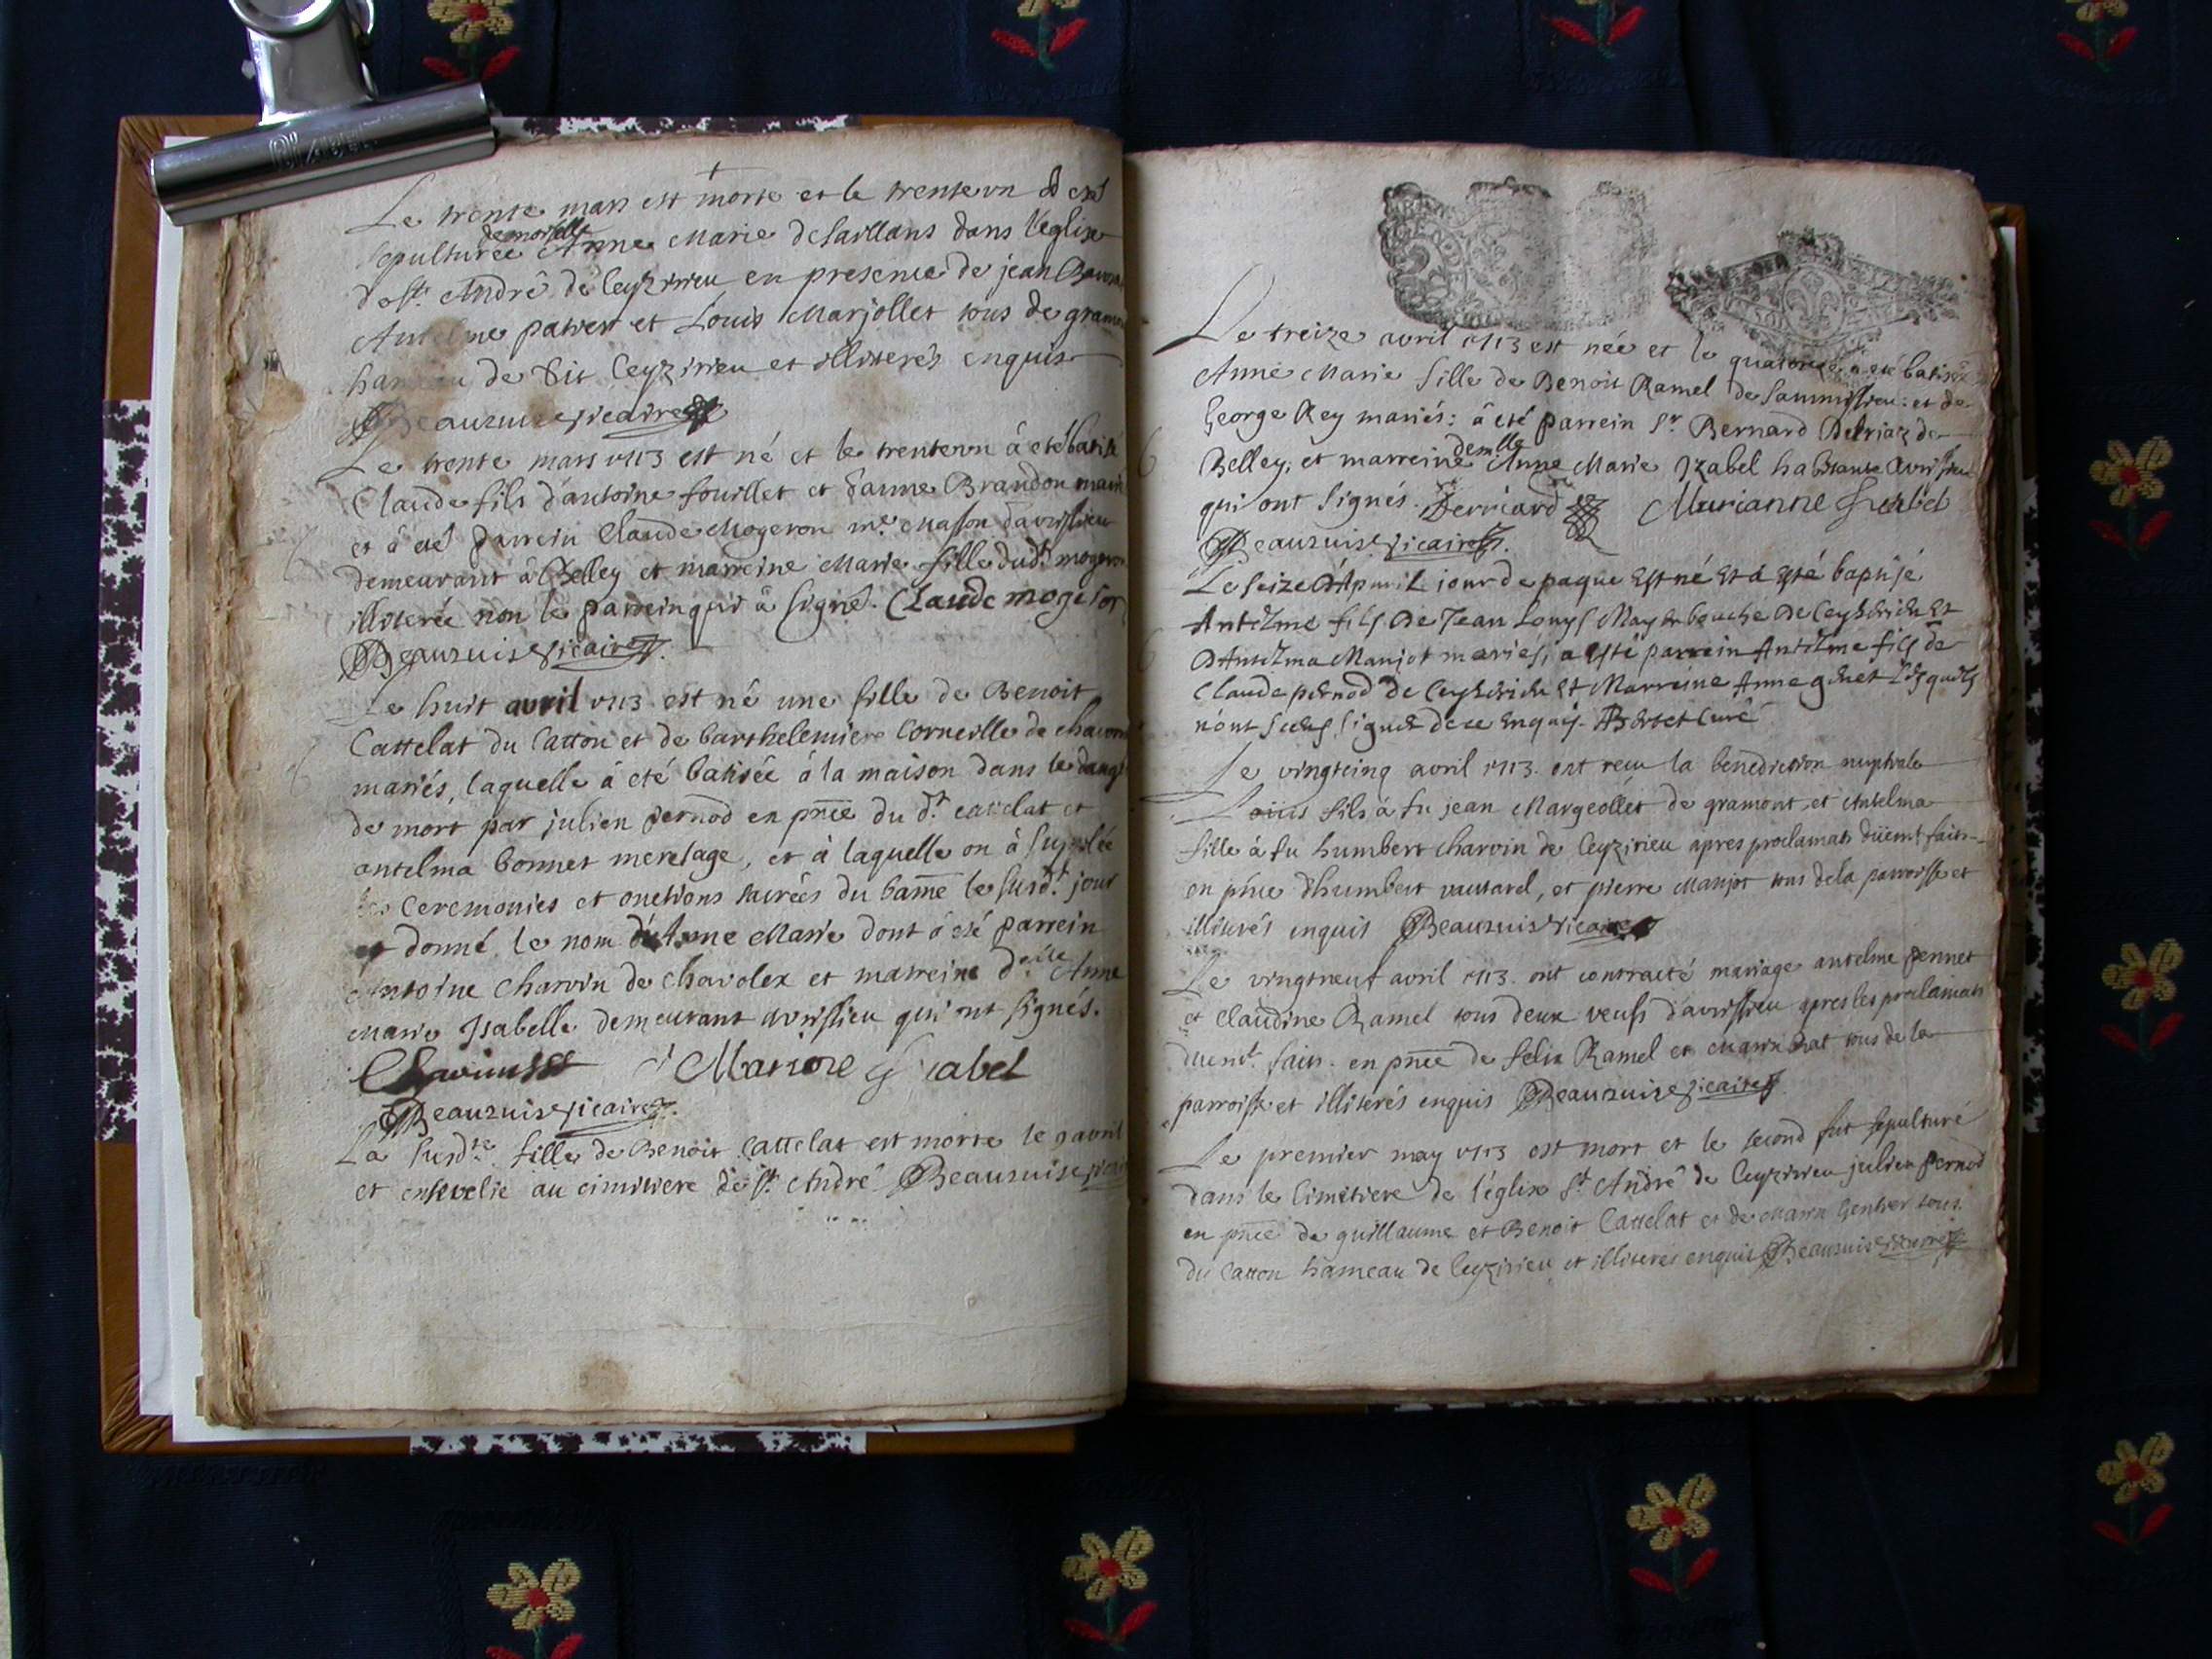 Le trente mars est morte et le trenteun a eté
sepulturée demoiselle Anne Marie de Saillans dans l'eglise
de st. André de Ceyzirieu en presence de jean
et Louis Marjollet tous de
de dit Ceyzirieu et illiterés enquis
Beauzuise vicaire
Le trente mars 1713 est né et le trenteun à eté batisé
Claude fils d'antoine fouillet et d'anne Brandon
et à eté parrein Claude Mogeron me. Masson d'avrissieu
demeurant à Belley et marreine Marie fille dudt. mogeron
illiterée non le parrein qui à signé. Claude mogeron
Beauzuise vicaire
Le huit avril 1713 est né une fille de Benoit
Cattelat du Catton et de barthelemiere Corneille de
mariés, laquelle à eté batisée à la maison dans le
de mort par julien pernod en pnce du dt. cattelat et
antelma bonnet mere sage, et à laquelle on à supplée
les Ceremonies et onctions sacrées du bame le susdt. jour
et donné le nom d'Anne Marie dont à eté parrein
Antoine Charvin de Chavolex et marreine dlle Anne
Marie Isabelle demeurant avrissieu qui ont signés.
Marione Isabel
Beauzuise vicaire
La susdte. fille de Benoit Cattelat est morte le 9 avril
et ensevelie au cimitiere de st. André Beauzuise
Le treize avril 1713 est née et le quatorze a eté batisée
Anne Marie fille de Benoit Ramel de et de
George Rey mariés: à eté parrein Sr. Bernard de
Belley, et marreine demlle Anne Marie Izabel habitante avrissieu
qui ont signés. Derriard Marianne Isabel
Beauzuise vicaire
Le seize d'Apvril jour de paque Est né Et a Esté baptisé
Antelme fils De Jean Louys De Ceyserieu Et
D'Antelma Manjot mariés, a esté parrein Antelme fils de
Claude pernod de Ceyserieu Et Marreine Anne Lesquels
n'ont sceus signer de ce Enquis. Bertet Curé
Le vingtcinq avril 1713. ont receu la benediction nuptiale
Louis fils à fu jean Margeollet de gramont, et Antelma
fille à fu humbert charvin de Ceyzirieu apres proclamats düemt faits
en pnce d'humbert vautarel, et pierre Manjot tous de la parroisse et
illiterés enquis Beauzuise vicaire
Le vingtneuf avril 1713. ont contracté mariage antelme pennet
et Claudine Ramel tous deux veufs d'avrissieu apres les proclamats
duemt. faits. en pnce de felix Ramel et tous de la
parroisse et illiterés enquis Beauzuise vicaire
Le premier may 1713 est mort et le second fut sepulturé
dans le Cimitiere de l'église St André de Ceyzirieu julien pernod
en pnce de guillaume et Benoit Cattelat et de tous
du Catton hameau de Ceyzirieu et illiterés enquis Beauzuise vicaire